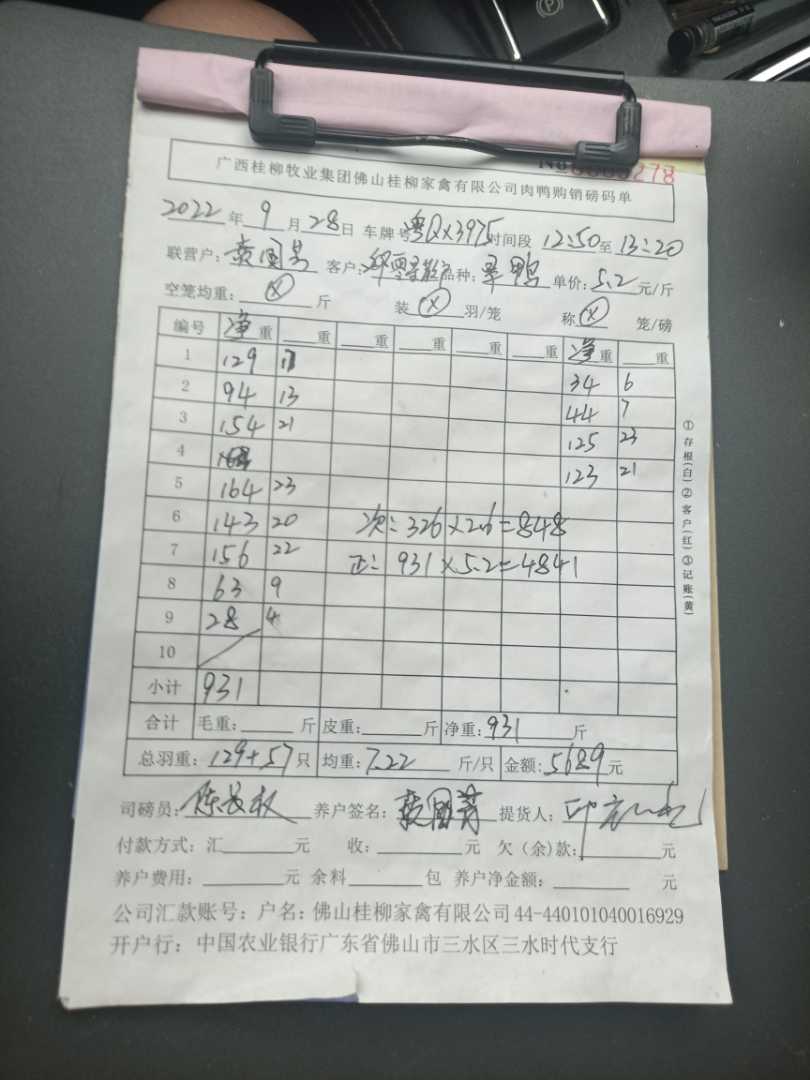 278
广西桂柳牧业集团佛山桂柳家禽有限公司肉鸭购销磅码单
2022年9月28日 车牌号粤QX3975时间段 12:50至13:20
联营户: 黄国 客户: 品种: 单价:5.2元/斤
空笼均重: X 斤 装 X 羽/笼 称 X 笼/磅
编号 净重 重 重 重 重 重 净重 重
1 129 34 6
2 94 13 44 7
3 154 21 125 23
4 123 21
5 164 23
6 143 20 次: 326×2.6=848
7 156 22 正: 931×5.2=4841
8 63 9
9 28 4
10
小计 931
合计 毛重: 斤 皮重: 斤 净重: 931 斤
总羽重: 129+57只 均重: 7.22 斤/只 金额: 5689元
司磅员: 陈 养户签名: 黄国 提货人:
付款方式: 汇 元 收: 元 欠(余)款: 元
养户费用: 元 余料 包 养户净金额: 元
公司汇款账号: 户名: 佛山桂柳家禽有限公司 44-440101040016929
开户行: 中国农业银行广东省佛山市三水区三水时代支行
①存根(白)②客户(红)③记账(黄)